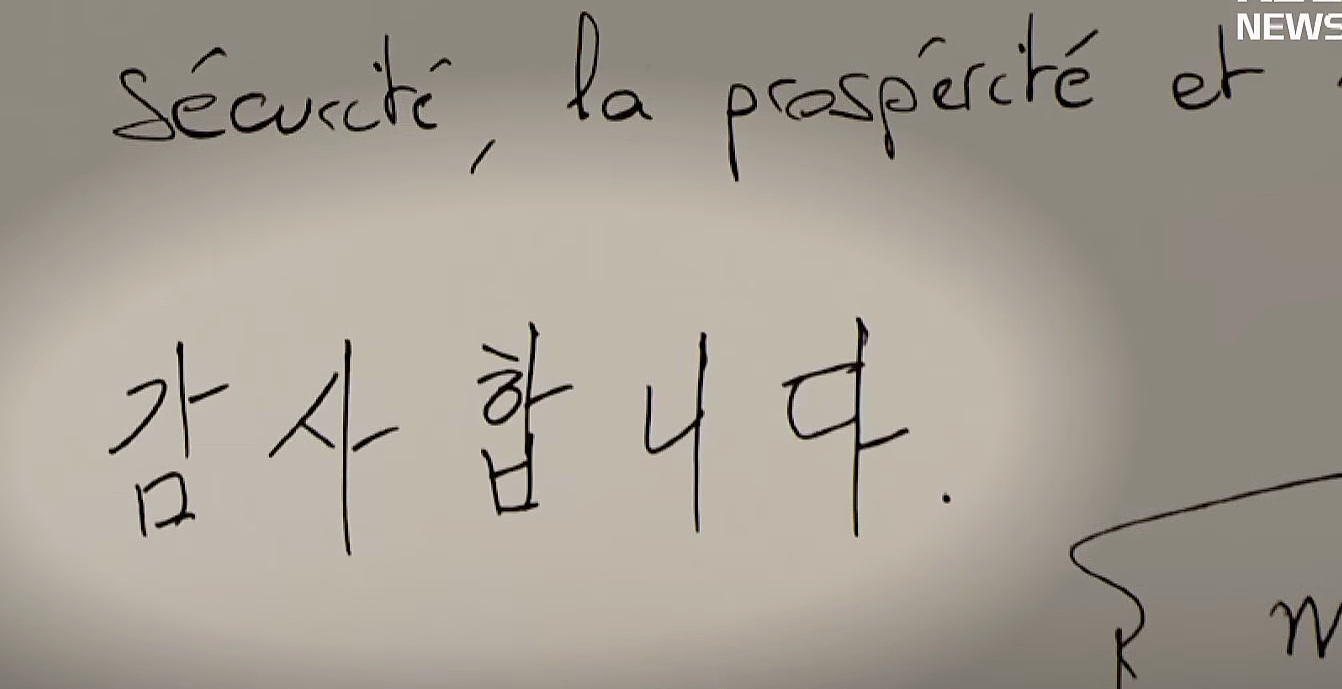 NEWS
sécurité, la prospérité et
감사합니다.